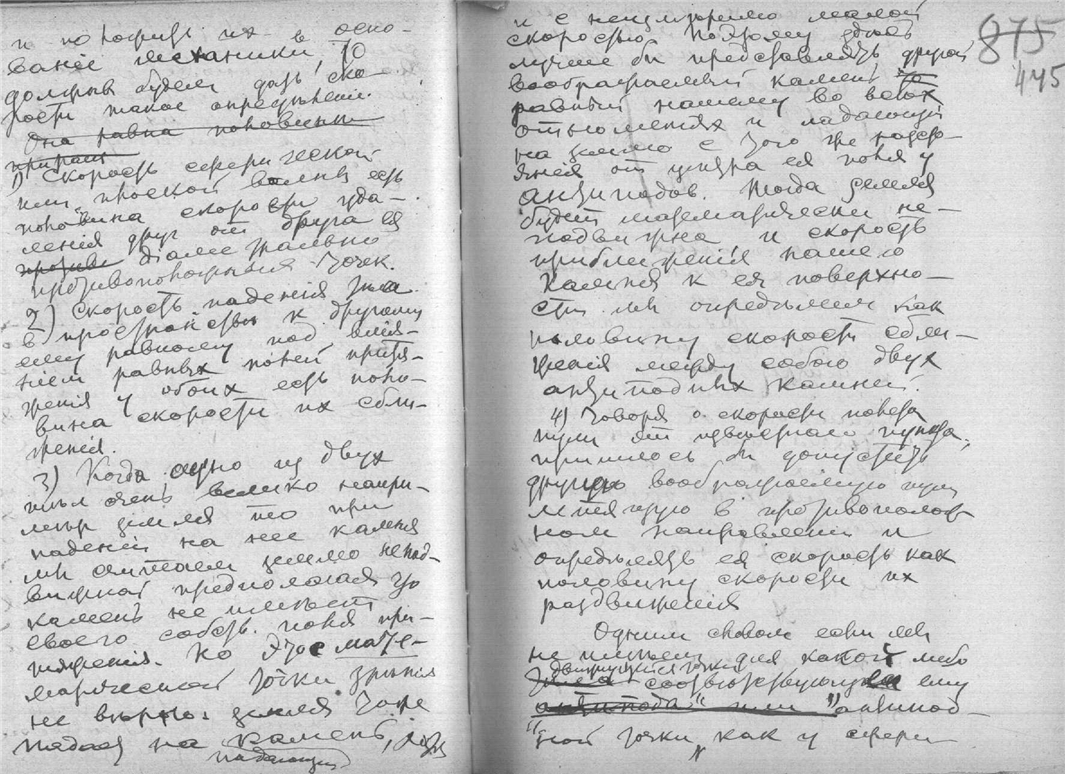 и положить их в осно-
ваніе механики, то
должны будем дать ско-
рости такое опредѣленіе.
Она равна половинѣ
1) Скорость сферической
или плоской волны есть
половина скорости уда-
ленія друг от друга ея
діаметрально
противоположных точек.
2) Скорость паденія тѣла
в пространствѣ к другому
ему равному под влія-
ніем равных полей притя-
женія у обоих есть поло-
вина скорости их сбли-
женія.
3) Когда одно из двух
тѣл очень велико напри-
мѣр земля то при
паденіи на нее камня
мы считаем землю непод-
вижной предполагая что
камень не имѣет
своего собств. поля при-
тяженія. Но это с мате-
матической точки зрѣнія
не вѣрно. земля тоже
падает на камень,
падающій
и с неизмѣримо малой
скоростью поэтому здѣсь
лучше бы представлять другой
воображаемый камень
равный нашему во всѣх
отношеніях и падающій
на землю с того же разсто-
янія от центра ея поля у
антиподов. Тогда земля
будет математически не-
подвижна и скорость
приближенія нашего
камня к ея поверхно-
сти мы опредѣляем как
половину скорости сбли-
женія между собою двух
антиподных камней.
4) Говоря о скорости полета
пули от
пришлось бы допустить
другую воображаемую пулю
летящую в противополож
ном направленіи и
опредѣлять ея скорость как
половину скорости их
раздвиженія
Одним словом если мы
не имѣем для какой либо
движущейся точки
тѣла соотвѣтствующей ему
антипода" или "антипод-
ной точки" как у сфери
875
445